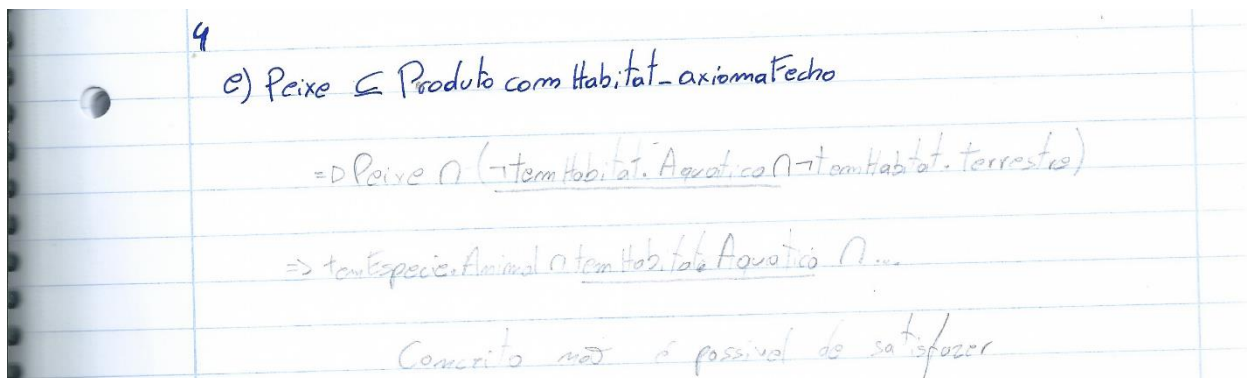 4
e) Peixe ⊆ Produto com Habitat_axiomaFecho
=D Peixe ∩ (¬temHabitat.Aquatico ∩ ¬temHabitat.terrestre)
=> temEspecie.Animal ∩ temHabitat.Aquatico ∩ ...
Conceito não é possivel de satisfazer